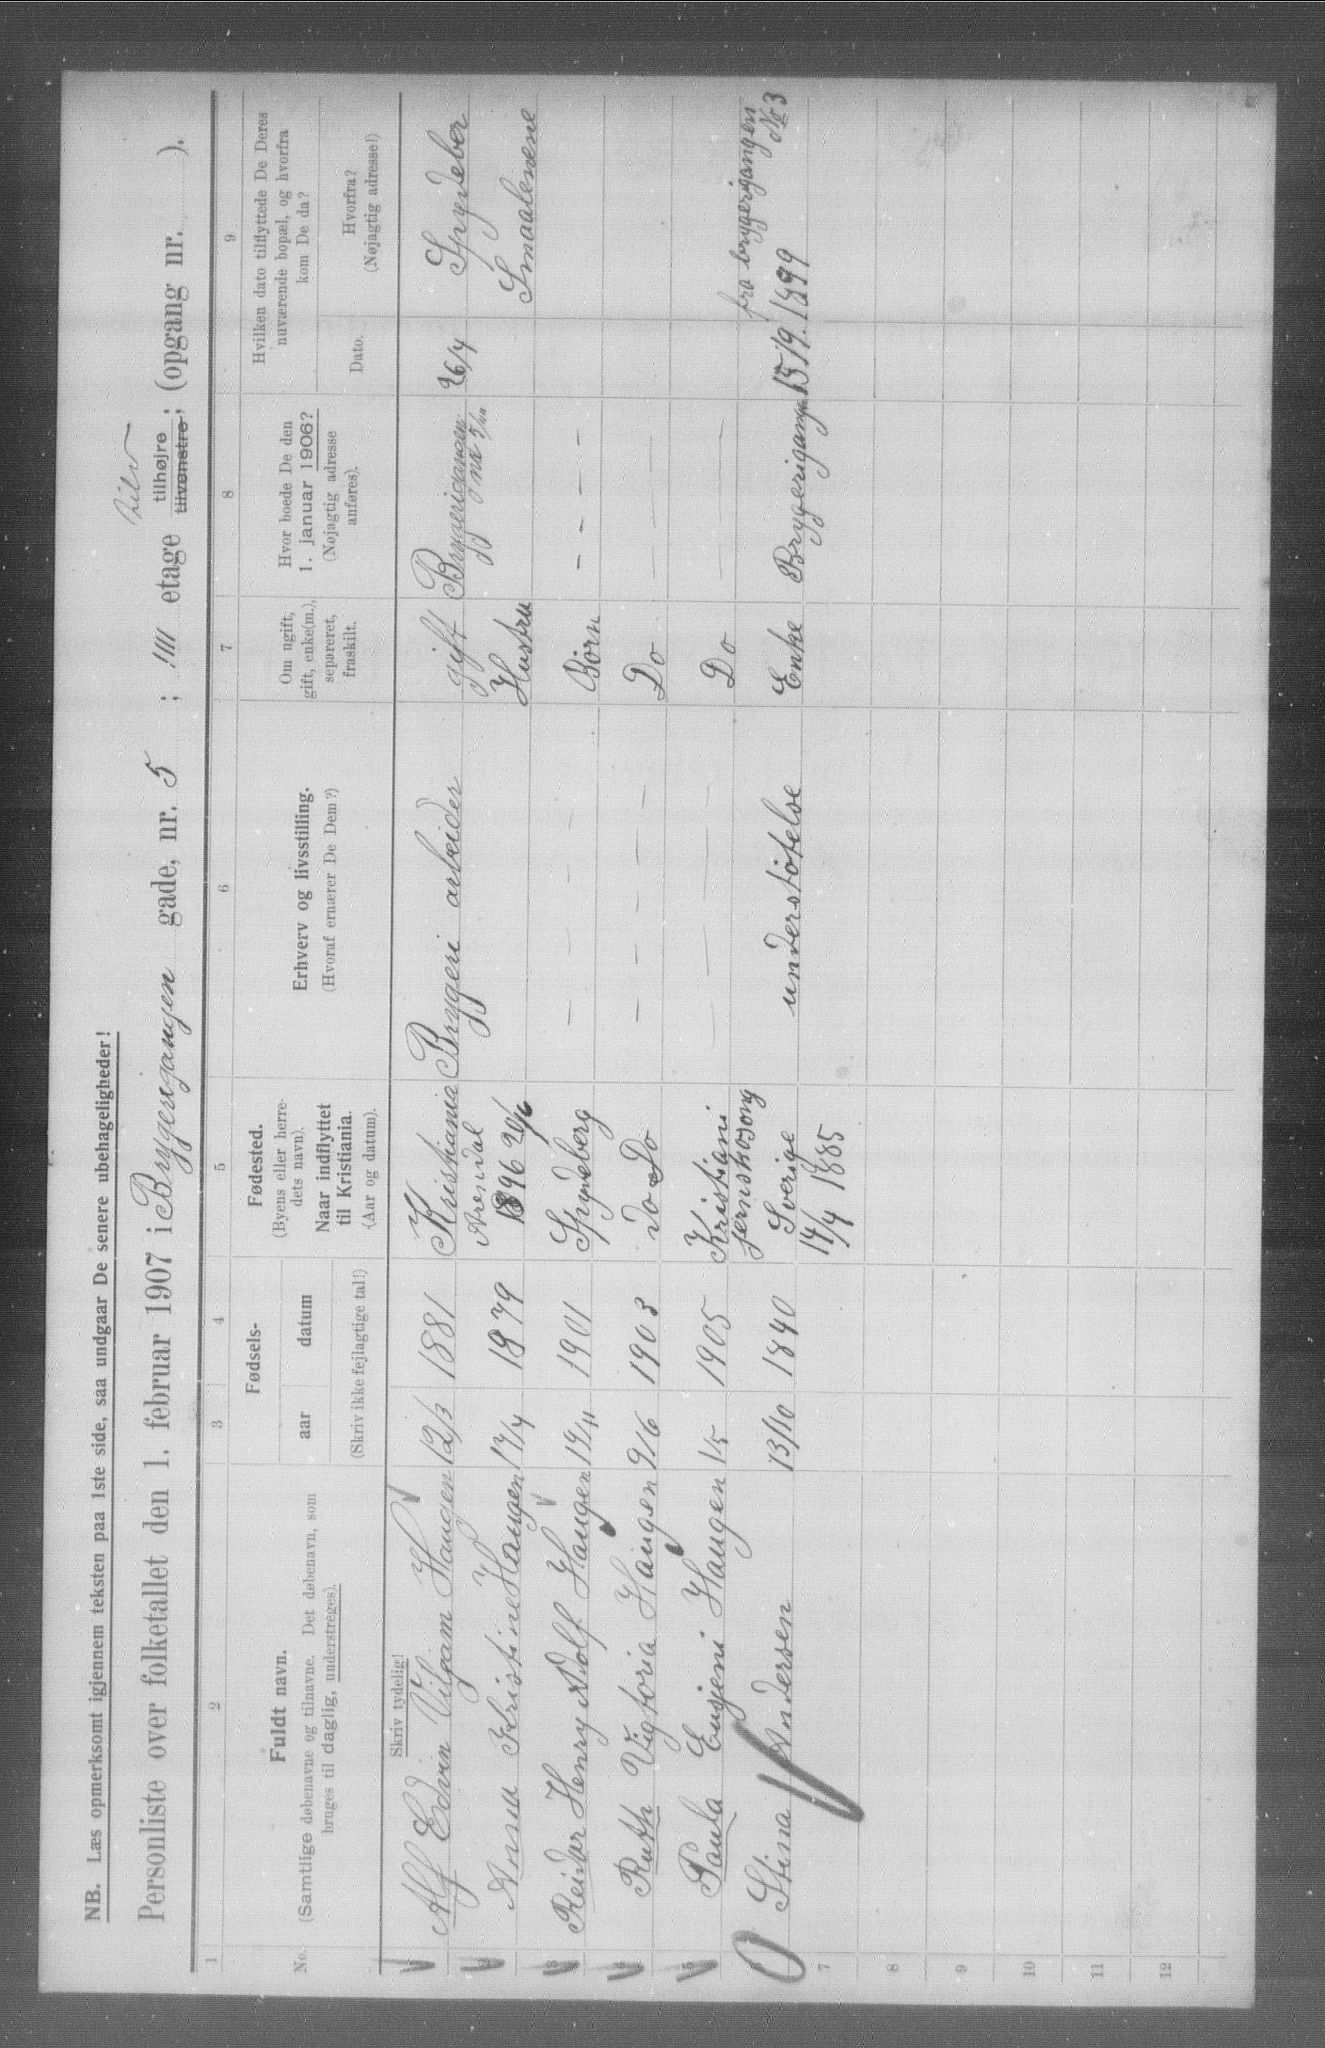 NB. Læs opmerksomt igjennem teksten paa 1ste side, saa undgaar De senere ubehageligheder!
Personliste over folketallet den 1. februar 1907 i Bryggerigangen gade, nr. 5 ; IIII etage tilhøjre ; (opgang nr. ).
tilvenstre
1 2 3 4 5 6 7 8 9
No.
Fuldt navn.
(Samtlige døbenavne og tilnavne. Det døbenavn, som
bruges til daglig, understreges).
Fødsels-
aar datum
(Skriv ikke fejlagtige tal!)
Fødested.
(Byens eller herre-
dets navn).
Naar indflyttet
til Kristiania.
(Aar og datum).
Erhverv og livsstilling.
(Hvoraf ernærer De Dem?)
Om ugift,
gift, enke(m.),
separeret,
fraskilt.
Hvor boede De den
1. januar 1906?
(Nøjagtig adresse
anføres).
Hvilken dato tilflyttede De Deres
nuværende bopæl, og hvorfra
kom De da?
Dato.
Hvorfra?
(Nøjagtig adresse!)
Skriv tydelig!
Alf Edvin Viljam Haugen 12/3 1881 Kristiania Bryggeri arbeider gift Bryggerigangen 26/4 Spydeber
Anna Kristine Haugen 17/4 1879 Arendal 1896 20/6 Hustru Smaalenene
Reidar Henry Adolf Haugen 19/11 1901 Spydeberg — — — Børn - - -
Ruth Vigtoria Haugen 9/6 1903 do Do — — — — Do — —
Paula Eugeni Haugen 1/5 1905 Kristiani — — — — Do — —
fra bryggerigangen No 3
Stina Andersen 13/10 1840 Sverige 14/4 1885 understøtelse Enke Bryggerigangen 15/9. 1899
7
8
9
10
11
12